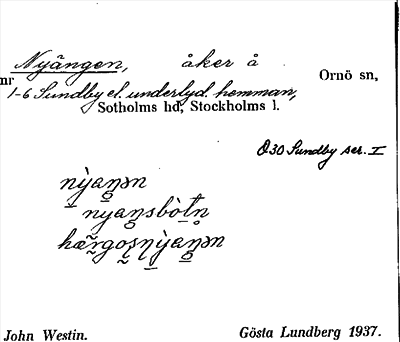 Nyängen, åker å
nr Ornö sn,
1-6 Sundby el. underlyd. hemman,
Sotholms hd, Stockholms l.
O.30 Sundby ser. I
nỳaŋən
nyaŋsbòtn̥
John Westin. Gösta Lundberg 1937.